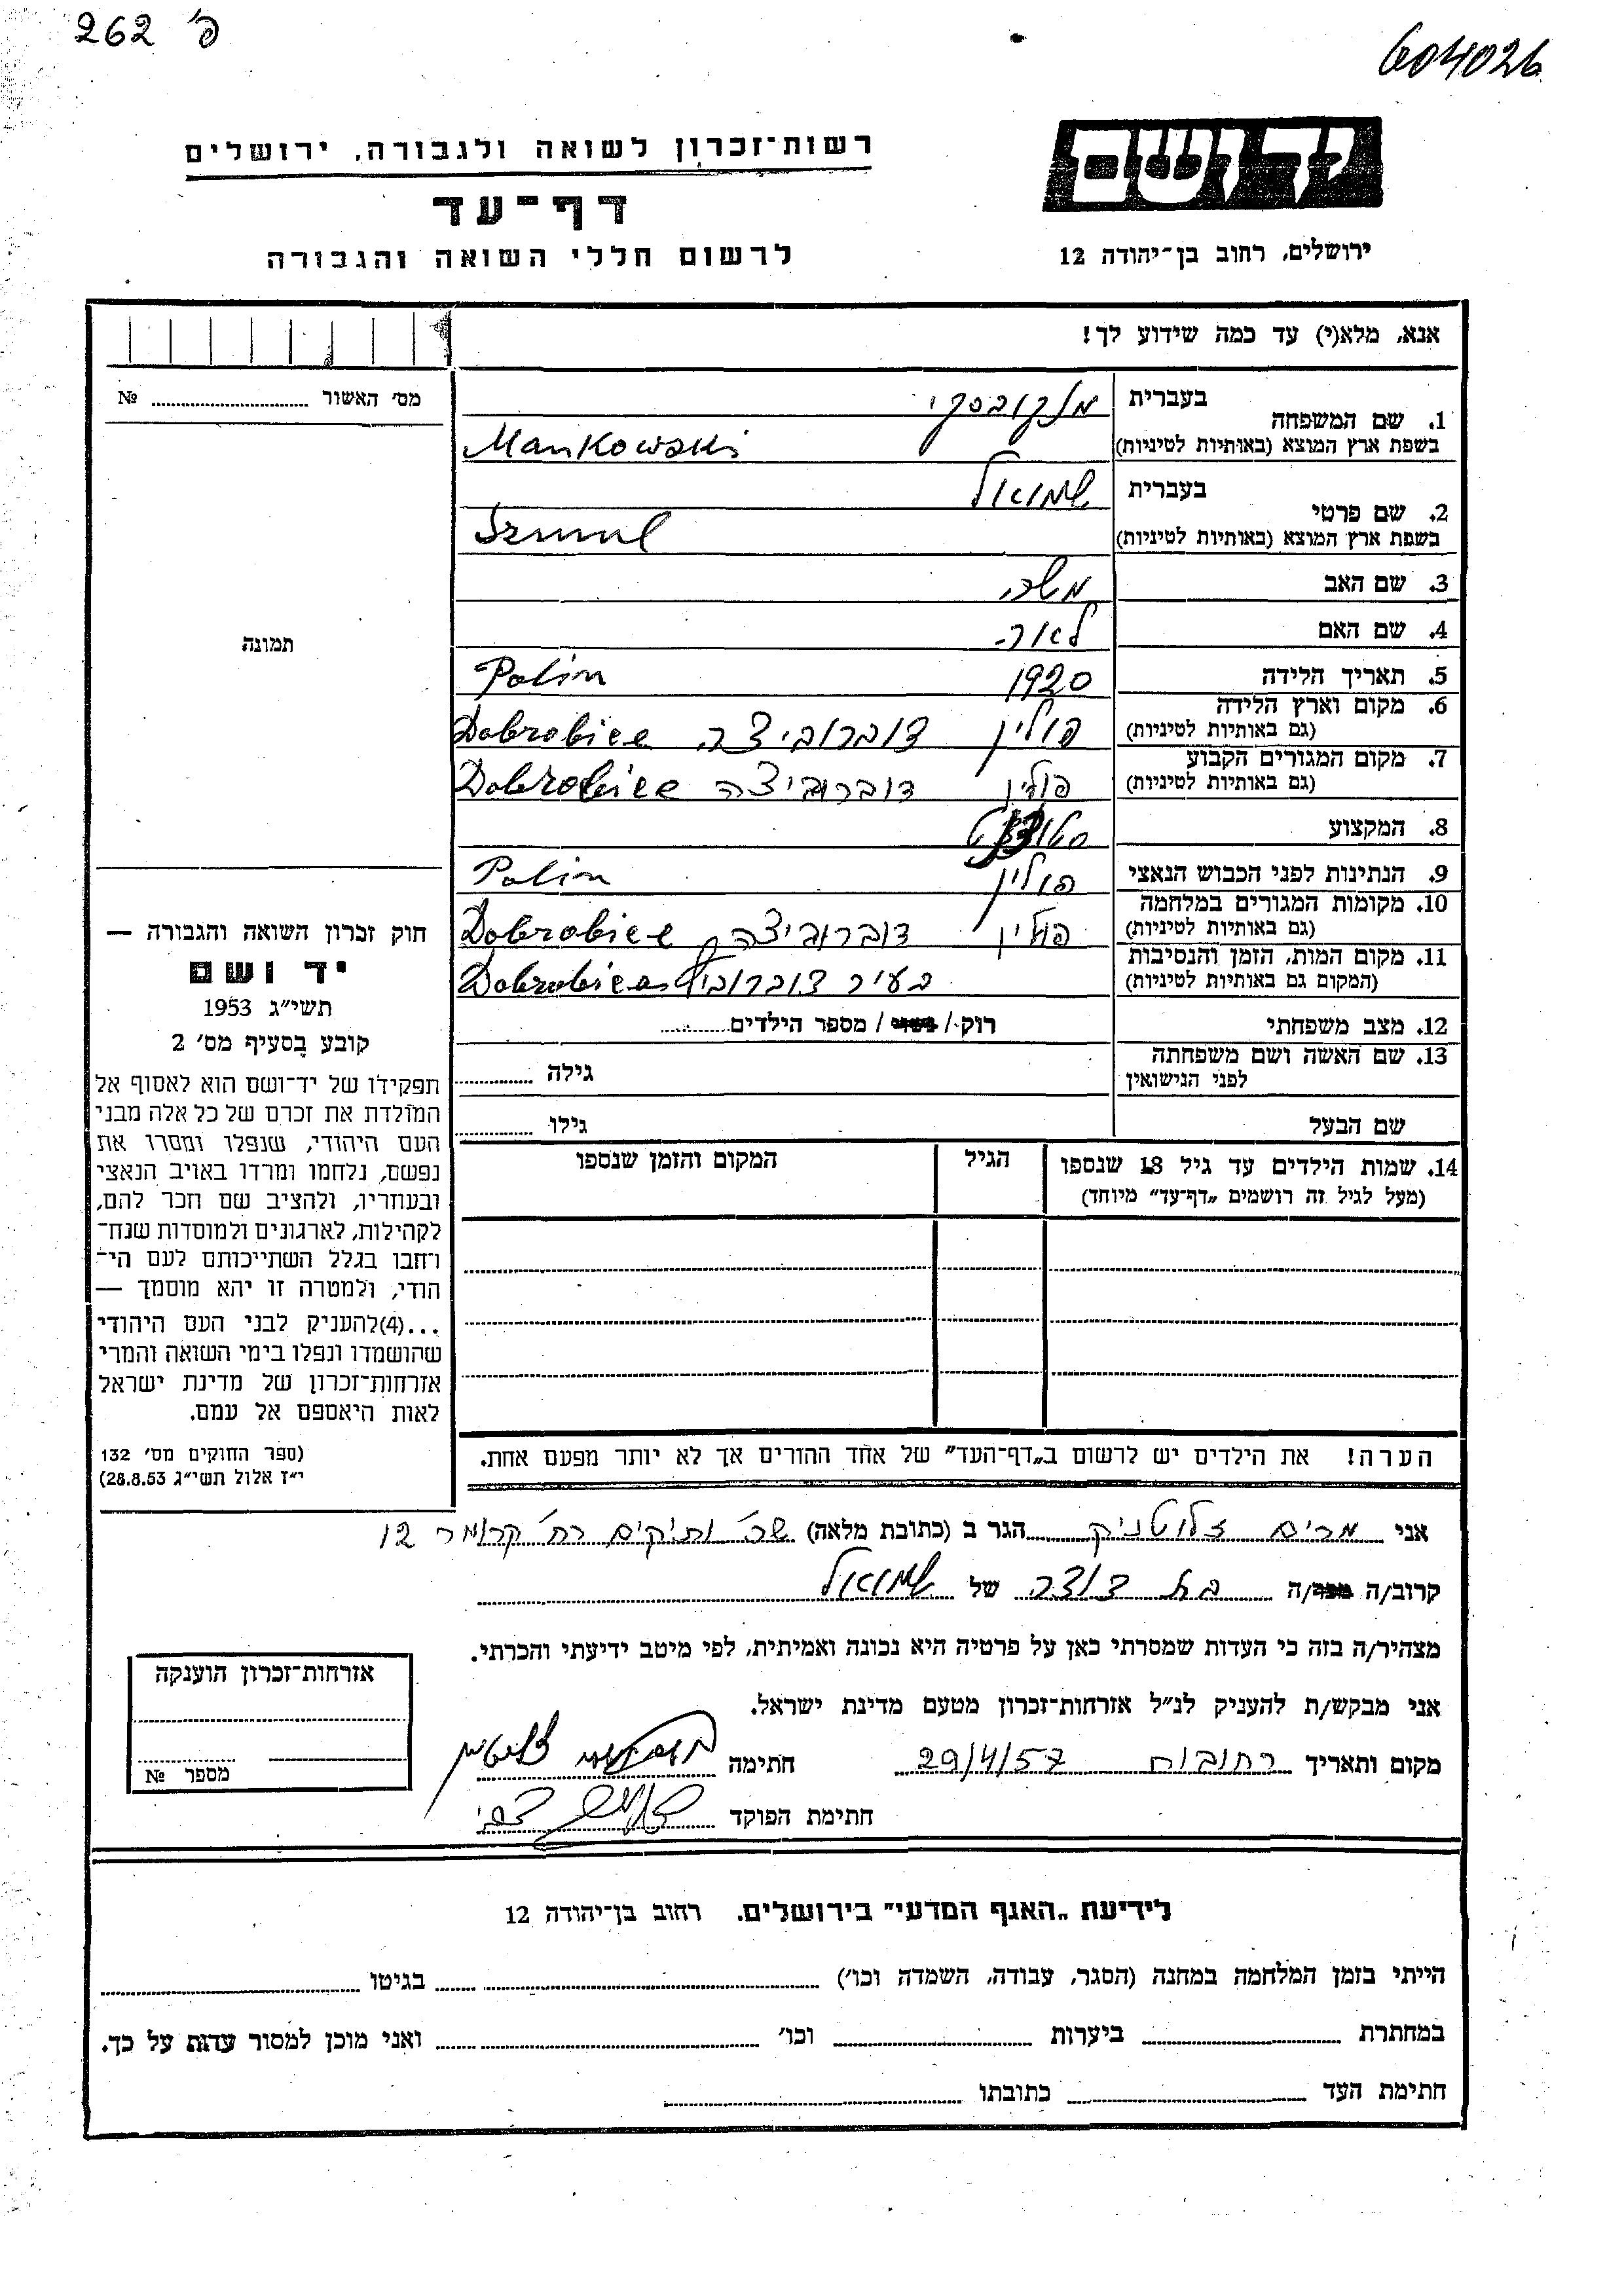 262 פ'
604026
יד ושם
ירושלים, רחוב בן־יהודה 12
רשות־זכרון לשואה ולגבורה, ירושלים
דף־עד
לרשום חללי השואה והגבורה
אנא, מלא(י) עד כמה שידוע לך!
מס' האשור № ........
תמונה
1. שם המשפחה בעברית מנקובסקי
בשפת ארץ המוצא (באותיות לטיניות) Mankowski
2. שם פרטי בעברית שמואל
בשפת ארץ המוצא (באותיות לטיניות) Szmul
3. שם האב משה
4. שם האם לאה
5. תאריך הלידה 1920 Polin
6. מקום וארץ הלידה (גם באותיות לטיניות) פולין דוברוביצה Dobrobice
7. מקום המגורים הקבוע (גם באותיות לטיניות) פולין דוברוביצה Dobrobice
8. המקצוע
9. הנתינות לפני הכבוש הנאצי פולין Polin
10. מקומות המגורים במלחמה (גם באותיות לטיניות) פולין דוברוביצה Dobrobice
11. מקום המות, הזמן והנסיבות (המקום גם באותיות לטיניות) בעיר Dobrobice
12. מצב משפחתי רוק / נשוי / מספר הילדים ........
13. שם האשה ושם משפחתה לפני הנישואין גילה ........
שם הבעל גילו ........
14. שמות הילדים עד גיל 18 שנספו (מעל לגיל זה רושמים „דף־עד" מיוחד) הגיל המקום והזמן שנספו
הערה! את הילדים יש לרשום ב„דף־העד" של אחד ההורים אך לא יותר מפעם אחת.
חוק זכרון השואה והגבורה —
יד ושם
תשי"ג 1953
קובע בסעיף מס' 2
תפקידו של יד־ושם הוא לאסוף אל
המולדת את זכרם של כל אלה מבני
העם היהודי, שנפלו ומסרו את
נפשם, נלחמו ומרדו באויב הנאצי
ובעוזריו, ולהציב שם וזכר להם,
לקהילות, לארגונים ולמוסדות שנח־
רחבו בגלל השתייכותם לעם הי־
הודי, ולמטרה זו יהא מוסמך —
...(4)להעניק לבני העם היהודי
שהושמדו ונפלו בימי השואה והמרי
אזרחות־זכרון של מדינת ישראל
לאות היאספם אל עמם.
(ספר החוקים מס' 132
י"ז אלול תשי"ג 28.8.53)
אני מרים זלוטניק הגר ב (כתובת מלאה) שכ' ותיקים רח' קרומר 12
קרוב/ה מכר/ה בת דודה של שמואל
מצהיר/ה בזה כי העדות שמסרתי כאן על פרטיה היא נכונה ואמיתית, לפי מיטב ידיעתי והכרתי.
אני מבקש/ת להעניק לנ"ל אזרחות־זכרון מטעם מדינת ישראל.
מקום ותאריך רחובות 29/4/57 חתימה
חתימת הפוקד
אזרחות־זכרון הוענקה
מספר №
לידיעת „האגף המדעי" בירושלים. רחוב בן־יהודה 12
הייתי בזמן המלחמה במחנה (הסגר, עבודה, השמדה וכו') ........ בגיטו ........
במחתרת ........ ביערות ........ וכו' ........ ואני מוכן למסור עדות על כך.
חתימת העד ........ כתובתו ........